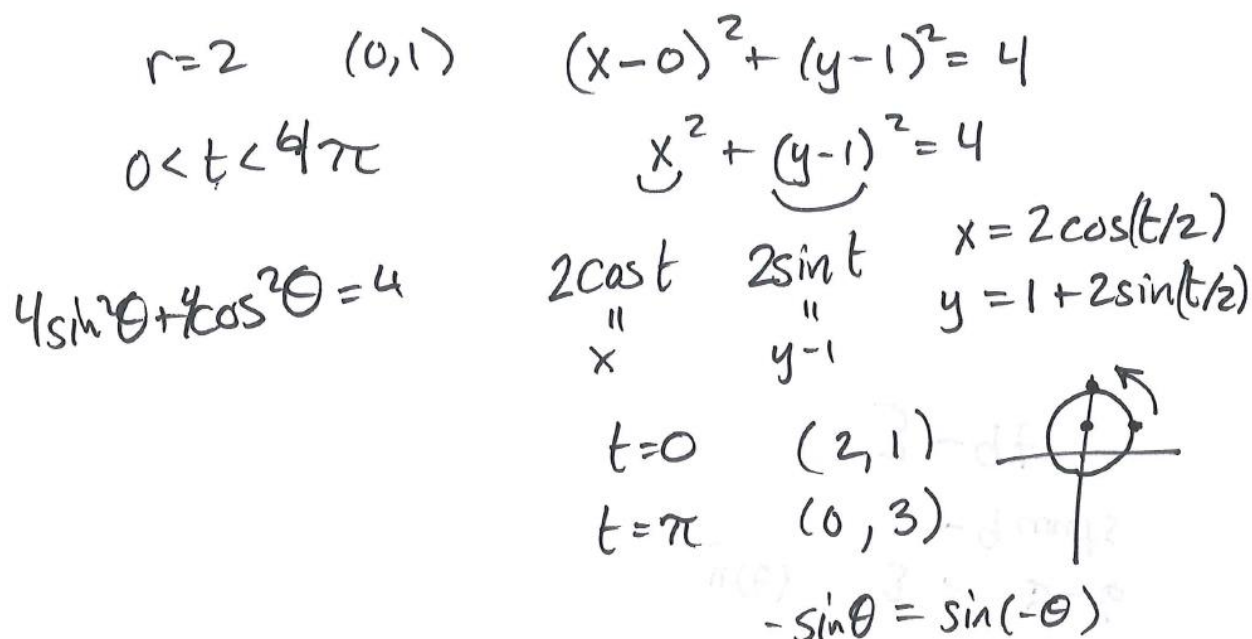 r=2 (0,1) (x-0)² + (y-1)² = 4
0<t<4π x² + (y-1)² = 4
4sin²θ+4cos²θ = 4
2cost 2sint
" "
x y-1
x = 2cos(t/2)
y = 1+2sin(t/2)
t=0 (2,1)
t=π (0,3)
-sinθ = sin(-θ)